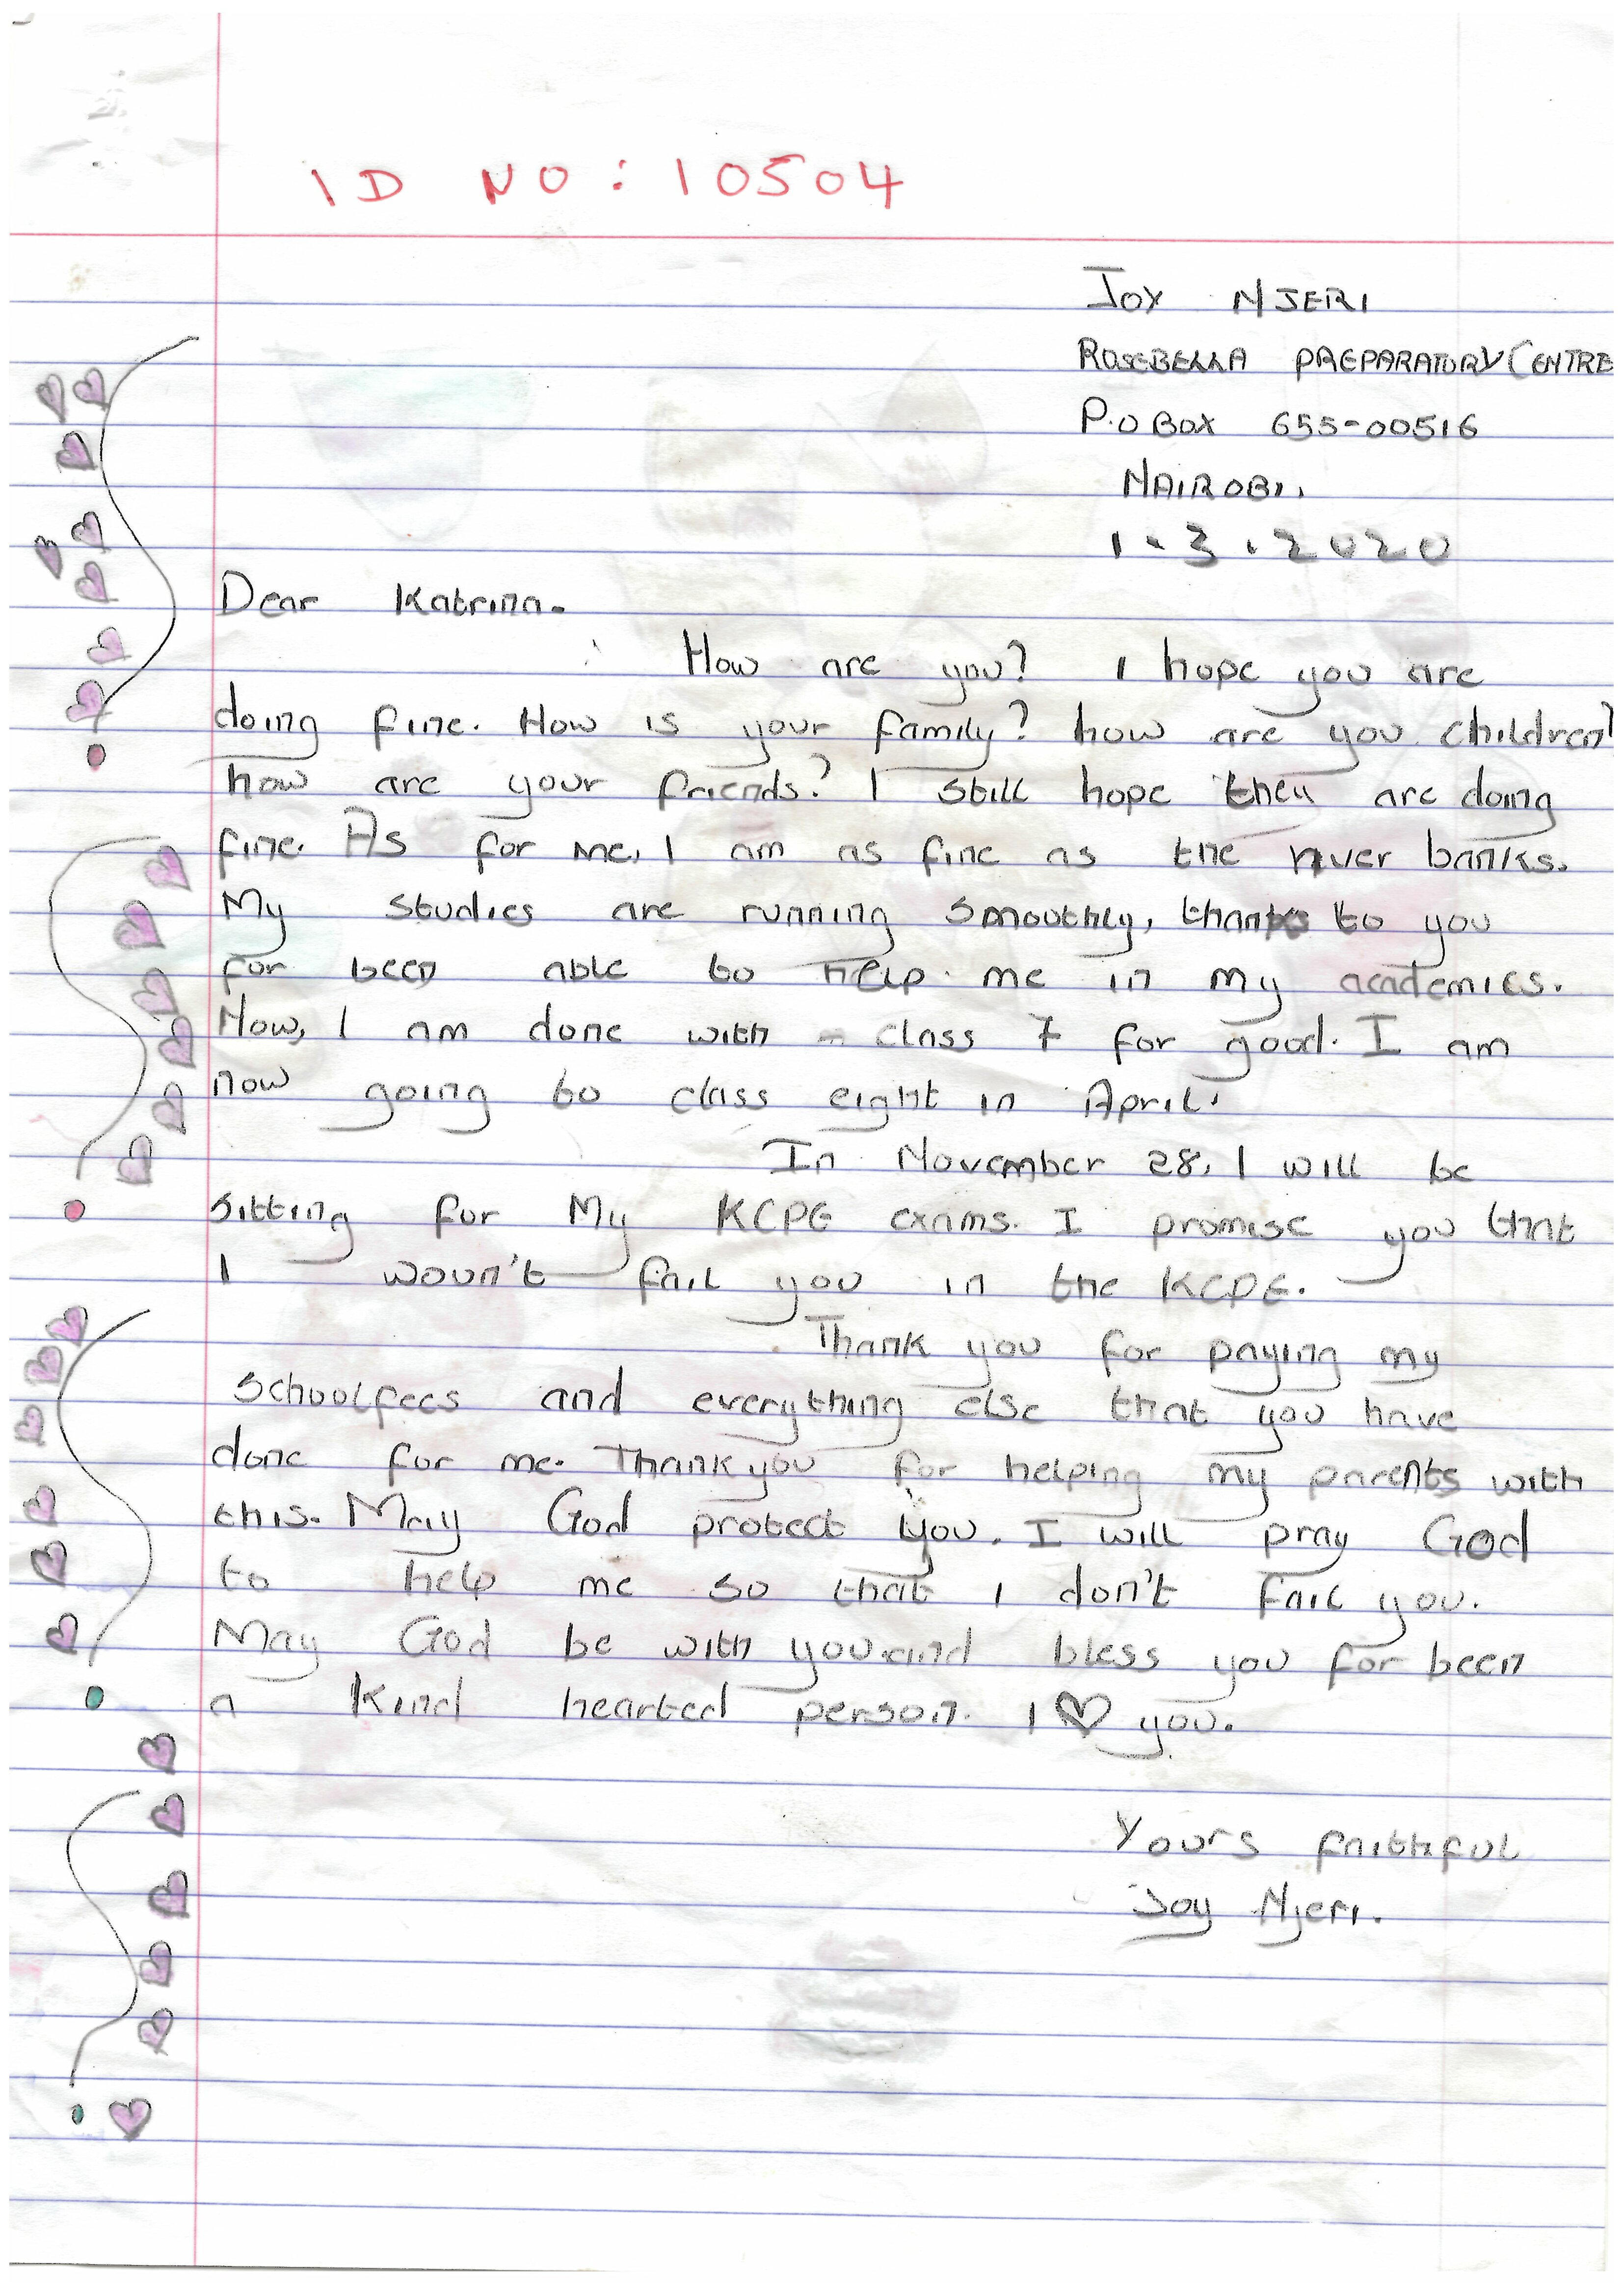 ID NO: 10504
JOY NJERI
ROSEBELLA PREPARATORY CENTRE
P.O BOX 655-00516
NAIROBI,
1.3.2020
Dear Katrina.
How are you? I hope you are
doing fine. How is your family? how are you children?
how are your friends? I still hope they are doing
fine. As for me, I am as fine as the river banks.
My studies are running smoothly, thanks to you
for been able to help me in my academics.
Now, I am done with class 7 for good. I am
now going to class eight in April.
In November 28, I will be
sitting for My KCPE exams. I promise you that
I woun't fail you in the KCPE.
Thank you for paying my
schoolfees and everything else that you have
done for me. Thank you for helping my parents with
this. May God protect you. I will pray God
to help me so that I don't fail you.
May God be with you and bless you for been
a kind hearted person. I ♡ you.
Yours faithful
Joy Njeri.